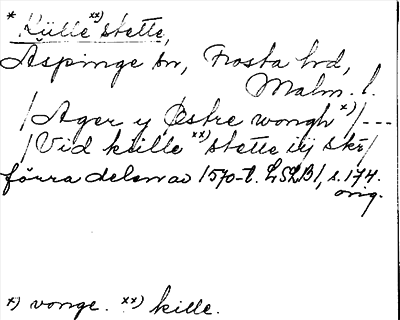 * Külle xx) stette,
Aspinge sn, Frosta hd,
Malm. l.
/Ager y Østre wongh x)/---
/Vid keille xx) stette iij skr/
förra delen av 1570-t. LSLB1, s.174.
orig.
x) vonge. xx) kille.